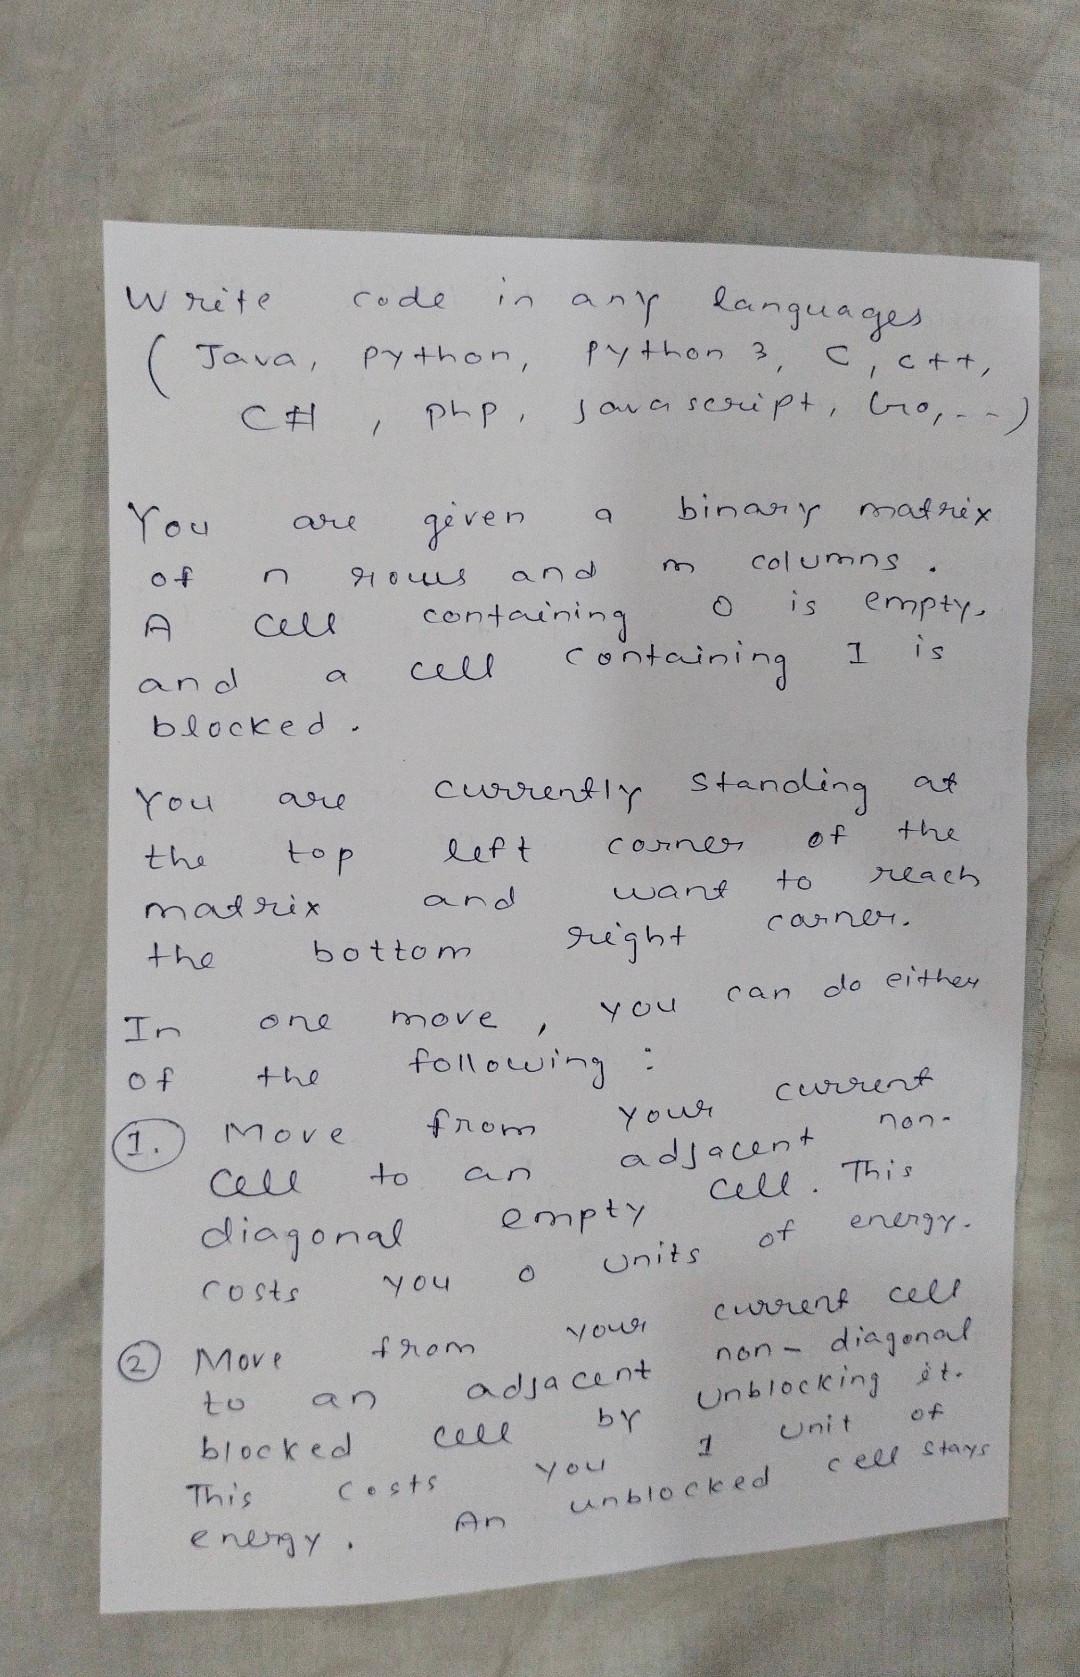 Write code in any languages
( Java, python, python 3, C, c++,
C# , php, Javascript, Go, --)
You are given a binary matrix
of n rows and m columns.
A cell containing 0 is empty,
and a cell containing 1 is
blocked.
You are currently standing at
the top left corner of the
matrix and want to reach
the bottom right corner.
In one move, you can do either
of the following:
1. Move from your current
cell to an adjacent non-
diagonal empty cell. This
costs you 0 units of energy.
2 Move from your current cell
to an adjacent non-diagonal
blocked cell by unblocking it.
This costs you 1 unit of
energy. An unblocked cell stays